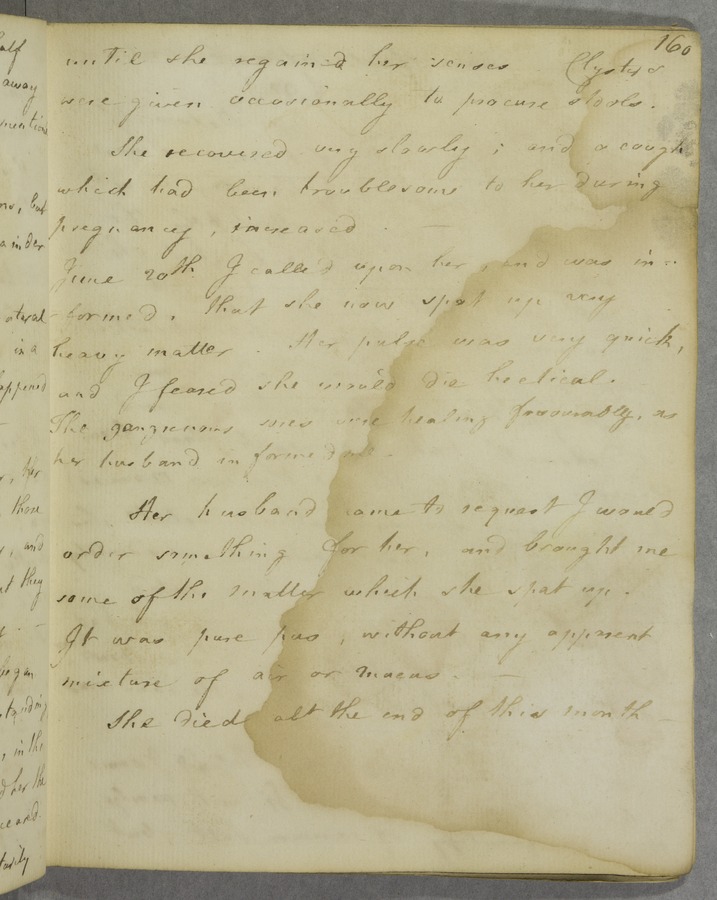 160
until she regained her senses. Clysters
were given occasionally to procure stools.
She recovered very slowly; and a cough
which had been troublesome to her during
pregnancy, increased. —
June 20th I call'd upon her, and was in=
-formed, that she now spat up very
heavy matter. Her pulse was very quick,
and I feared she would die hectical.
The gangrenous sores were healing favourably, as
her husband informed me. —
Her husband came to request I would
order something for her, and brought me
some of the matter which she spat up.
It was pure pus, without any apparent
mixture of air or mucus. —
She died att the end of this month —
alf
away
mention
ns, but
ainder
atural
in a
appened
r, her
those
, and
at they
began
, in the
d her the
tarily